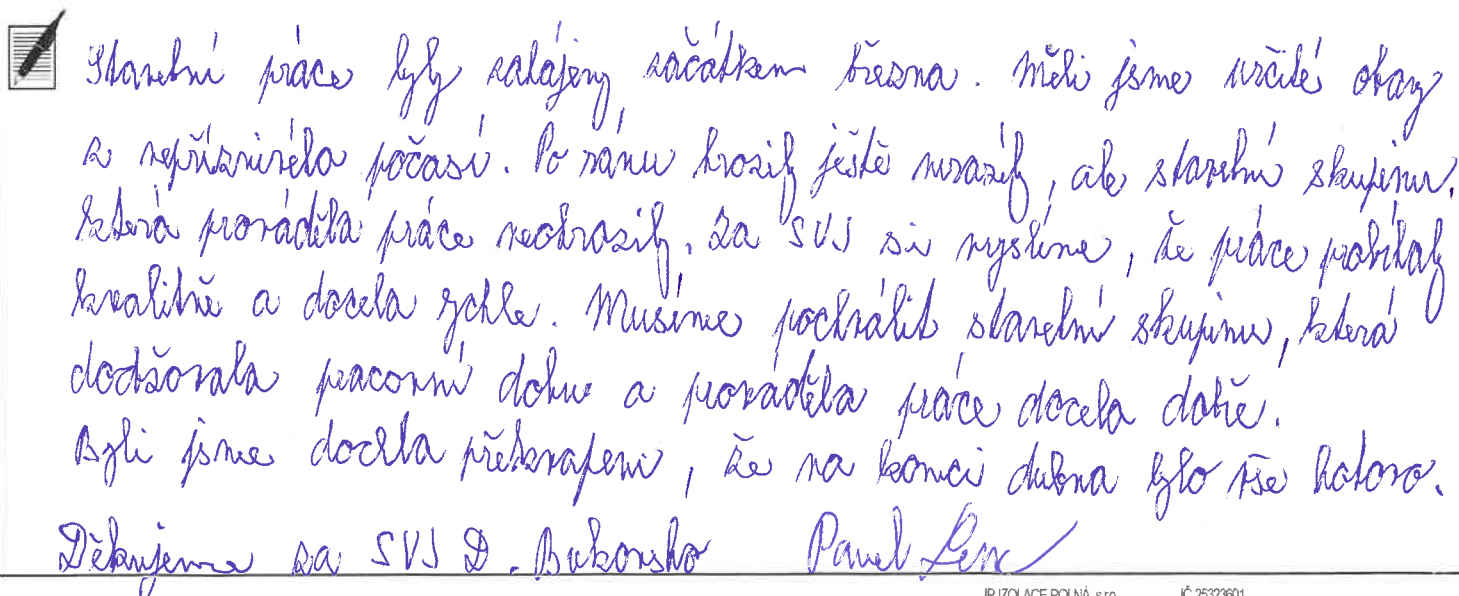 Stavební práce byly zahájeny začátkem března. Měli jsme určité obavy
z nepříznivého počasí. Po ránu hrozily ještě mrazíky, ale stavební skupinu,
která prováděla práce neohrozily. Za SVJ si myslíme, že práce probíhaly
kvalitně a docela rychle. Musíme pochválit stavební skupinu, která
dodržovala pracovní dobu a prováděla práce docela dobře.
Byli jsme docela překvapeni, že na konci dubna bylo vše hotovo.
Děkujeme za SVJ D. Bukovsko Pavel
IP IZOLACE POLNÁ, s.r.o. IČ 25323601